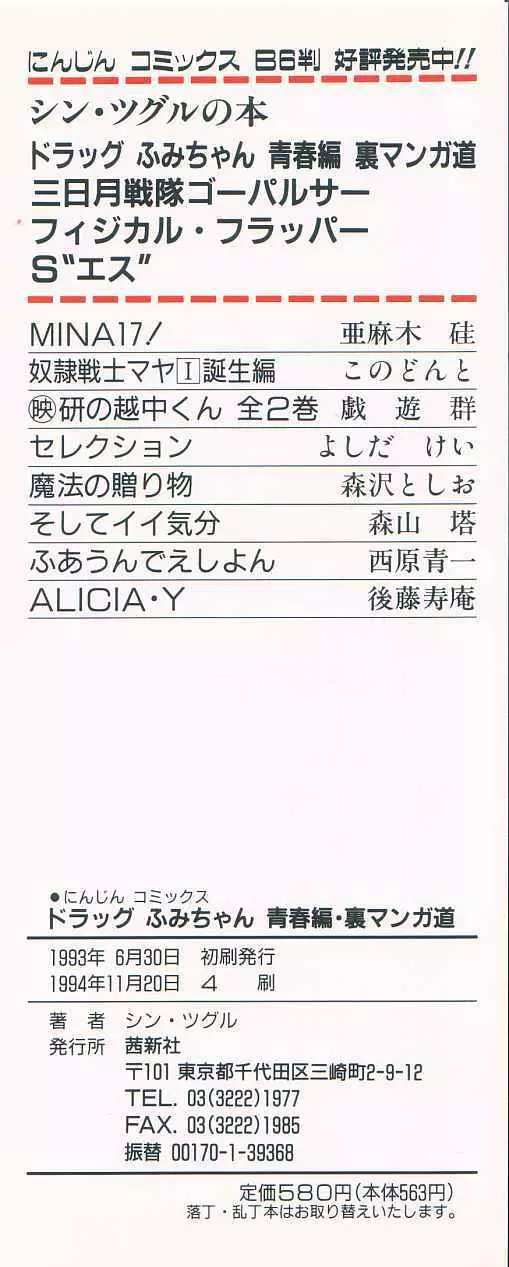 にんじん コミックス B6判 好評発売中!!
シン・ツグルの本
ドラッグ ふみちゃん 青春編 裏マンガ道
三日月戦隊ゴーパルサー
フィジカル・フラッパー
S“エス”
MINA17! 亜麻木 硅
奴隷戦士マヤⅠ誕生編 このどんと
㊍研の越中くん 全2巻 戯遊群
セレクション よしだ けい
魔法の贈り物 森沢としお
そしてイイ気分 森山 塔
ふあうんでえしよん 西原青一
ALICIA・Y 後藤寿庵
●にんじん コミックス
ドラッグ ふみちゃん 青春編・裏マンガ道
1993年 6月30日 初刷発行
1994年11月20日 4 刷
著 者 シン・ツグル
発行所 茜新社
〒101 東京都千代田区三崎町2-9-12
TEL. 03(3222)1977
FAX. 03(3222)1985
振替 00170-1-39368
定価580円(本体563円)
落丁・乱丁本はお取り替えいたします。